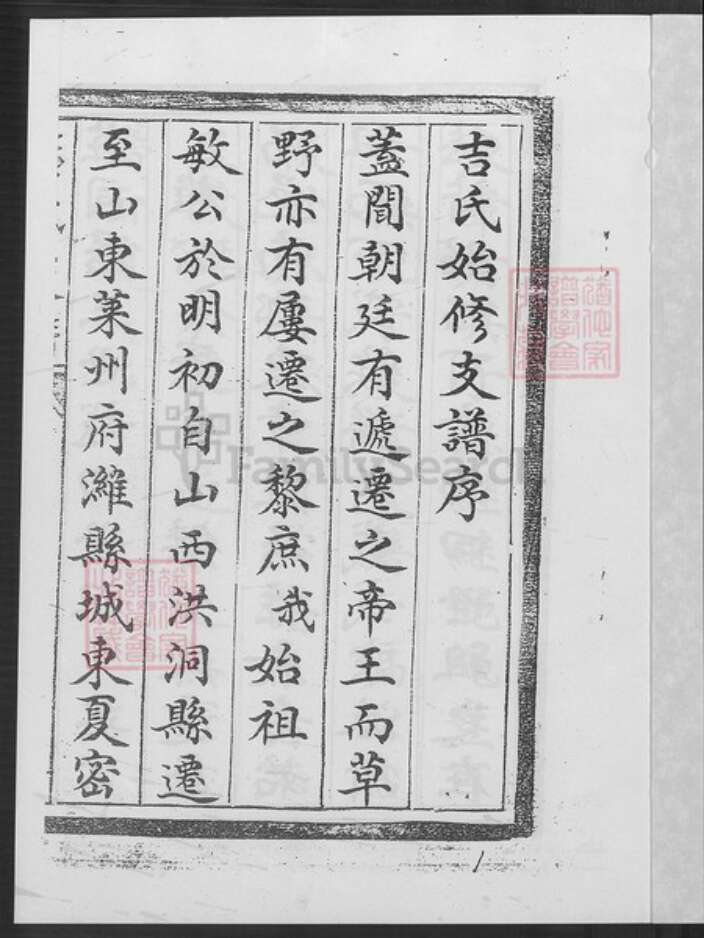 吉氏始修支譜序
蓋聞朝廷有遞遷之帝王而草
野亦有屢遷之黎庶我始祖
敏公於明初自山西洪洞縣遷
至山東萊州府濰縣城東夏密
FamilySearch
1